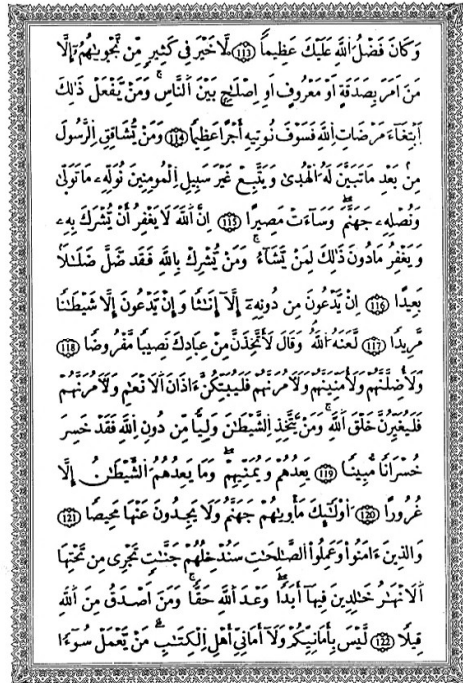 وَكَانَ فَضْلُ اللَّهِ عَلَيْكَ عَظِيماً ١١٣ لَّا خَيْرَ فِي كَثِيرٍ مِّن نَّجْوَيٰهُمُۥٓ إِلَّا
مَنَ اَمَرَ بِصَدَقَةٍ اَوْ مَعْرُوفٍ اَوِ اِصْلَٰحٍ بَيْنَ اَلنَّاسِ وَمَنْ يَّفْعَلْ ذَٰلِكَ
اَبْتِغَآءَ مَرْضَاتِ اِللَّهِ فَسَوْفَ نُوتِيهِ أَجْراً عَظِيماً ١١٤ وَمَنْ يُّشَاقِقِ اِلرَّسُولَ
مِنۢ بَعْدِ مَا تَبَيَّنَ لَهُ اُلْهُدَىٰ وَيَتَّبِعْ غَيْرَ سَبِيلِ اِلْمُومِنِينَ نُوَلِّهِۦ مَا تَوَلَّىٰ
وَنُصْلِهِۦ جَهَنَّمَ وَسَآءَتْ مَصِيراً ١١٥ اِنَّ اَللَّهَ لَا يَغْفِرُ أَنْ يُّشْرَكَ بِهِۦ
وَيَغْفِرُ مَا دُونَ ذَٰلِكَ لِمَنْ يَّشَآءُ وَمَنْ يُّشْرِكْ بِاللَّهِ فَقَد ضَّلَّ ضَلَٰلاً
بَعِيداً ١١٦ اِنْ يَّدْعُونَ مِن دُونِهِۦٓ إِلَّآ إِنَٰثاً وَإِنْ يَّدْعُونَ إِلَّا شَيْطَٰناً
مَّرِيداً ١١٧ لَّعَنَهُ اُللَّهُ وَقَالَ لَأَتَّخِذَنَّ مِنْ عِبَادِكَ نَصِيباً مَّفْرُوضاً ١١٨
وَلَأُضِلَّنَّهُمْ وَلَأُمَنِّيَنَّهُمْ وَلَأٓمُرَنَّهُمْ فَلَيُبَتِّكُنَّ ءَاذَانَ اَلَانْعَٰمِ وَلَأٓمُرَنَّهُمْ
فَلَيُغَيِّرُنَّ خَلْقَ اَللَّهِ وَمَنْ يَّتَّخِذِ اِلشَّيْطَٰنَ وَلِيّاً مِّن دُونِ اِللَّهِ فَقَدْ خَسِرَ
خُسْرَاناً مُّبِيناً ١١٩ يَعِدُهُمْ وَيُمَنِّيهِمْ وَمَا يَعِدُهُمُ اُلشَّيْطَٰنُ إِلَّا
غُرُوراً ١٢٠ اُوْلَٰٓئِكَ مَأْوَيٰهُمْ جَهَنَّمُ وَلَا يَجِدُونَ عَنْهَا مَحِيصاً ١٢١
وَالَّذِينَ ءَامَنُواْ وَعَمِلُواْ اُلصَّٰلِحَٰتِ سَنُدْخِلُهُمْ جَنَّٰتٍ تَجْرِي مِن تَحْتِهَا
اَلَانْهَٰرُ خَٰلِدِينَ فِيهَآ أَبَداً وَعْدَ اَللَّهِ حَقّاً وَمَنَ اَصْدَقُ مِنَ اَللَّهِ
قِيلاً ١٢٢ لَّيْسَ بِأَمَانِيِّكُمْ وَلَآ أَمَانِيِّ أَهْلِ اِلْكِتَٰبِ مَنْ يَّعْمَلْ سُوٓءاً